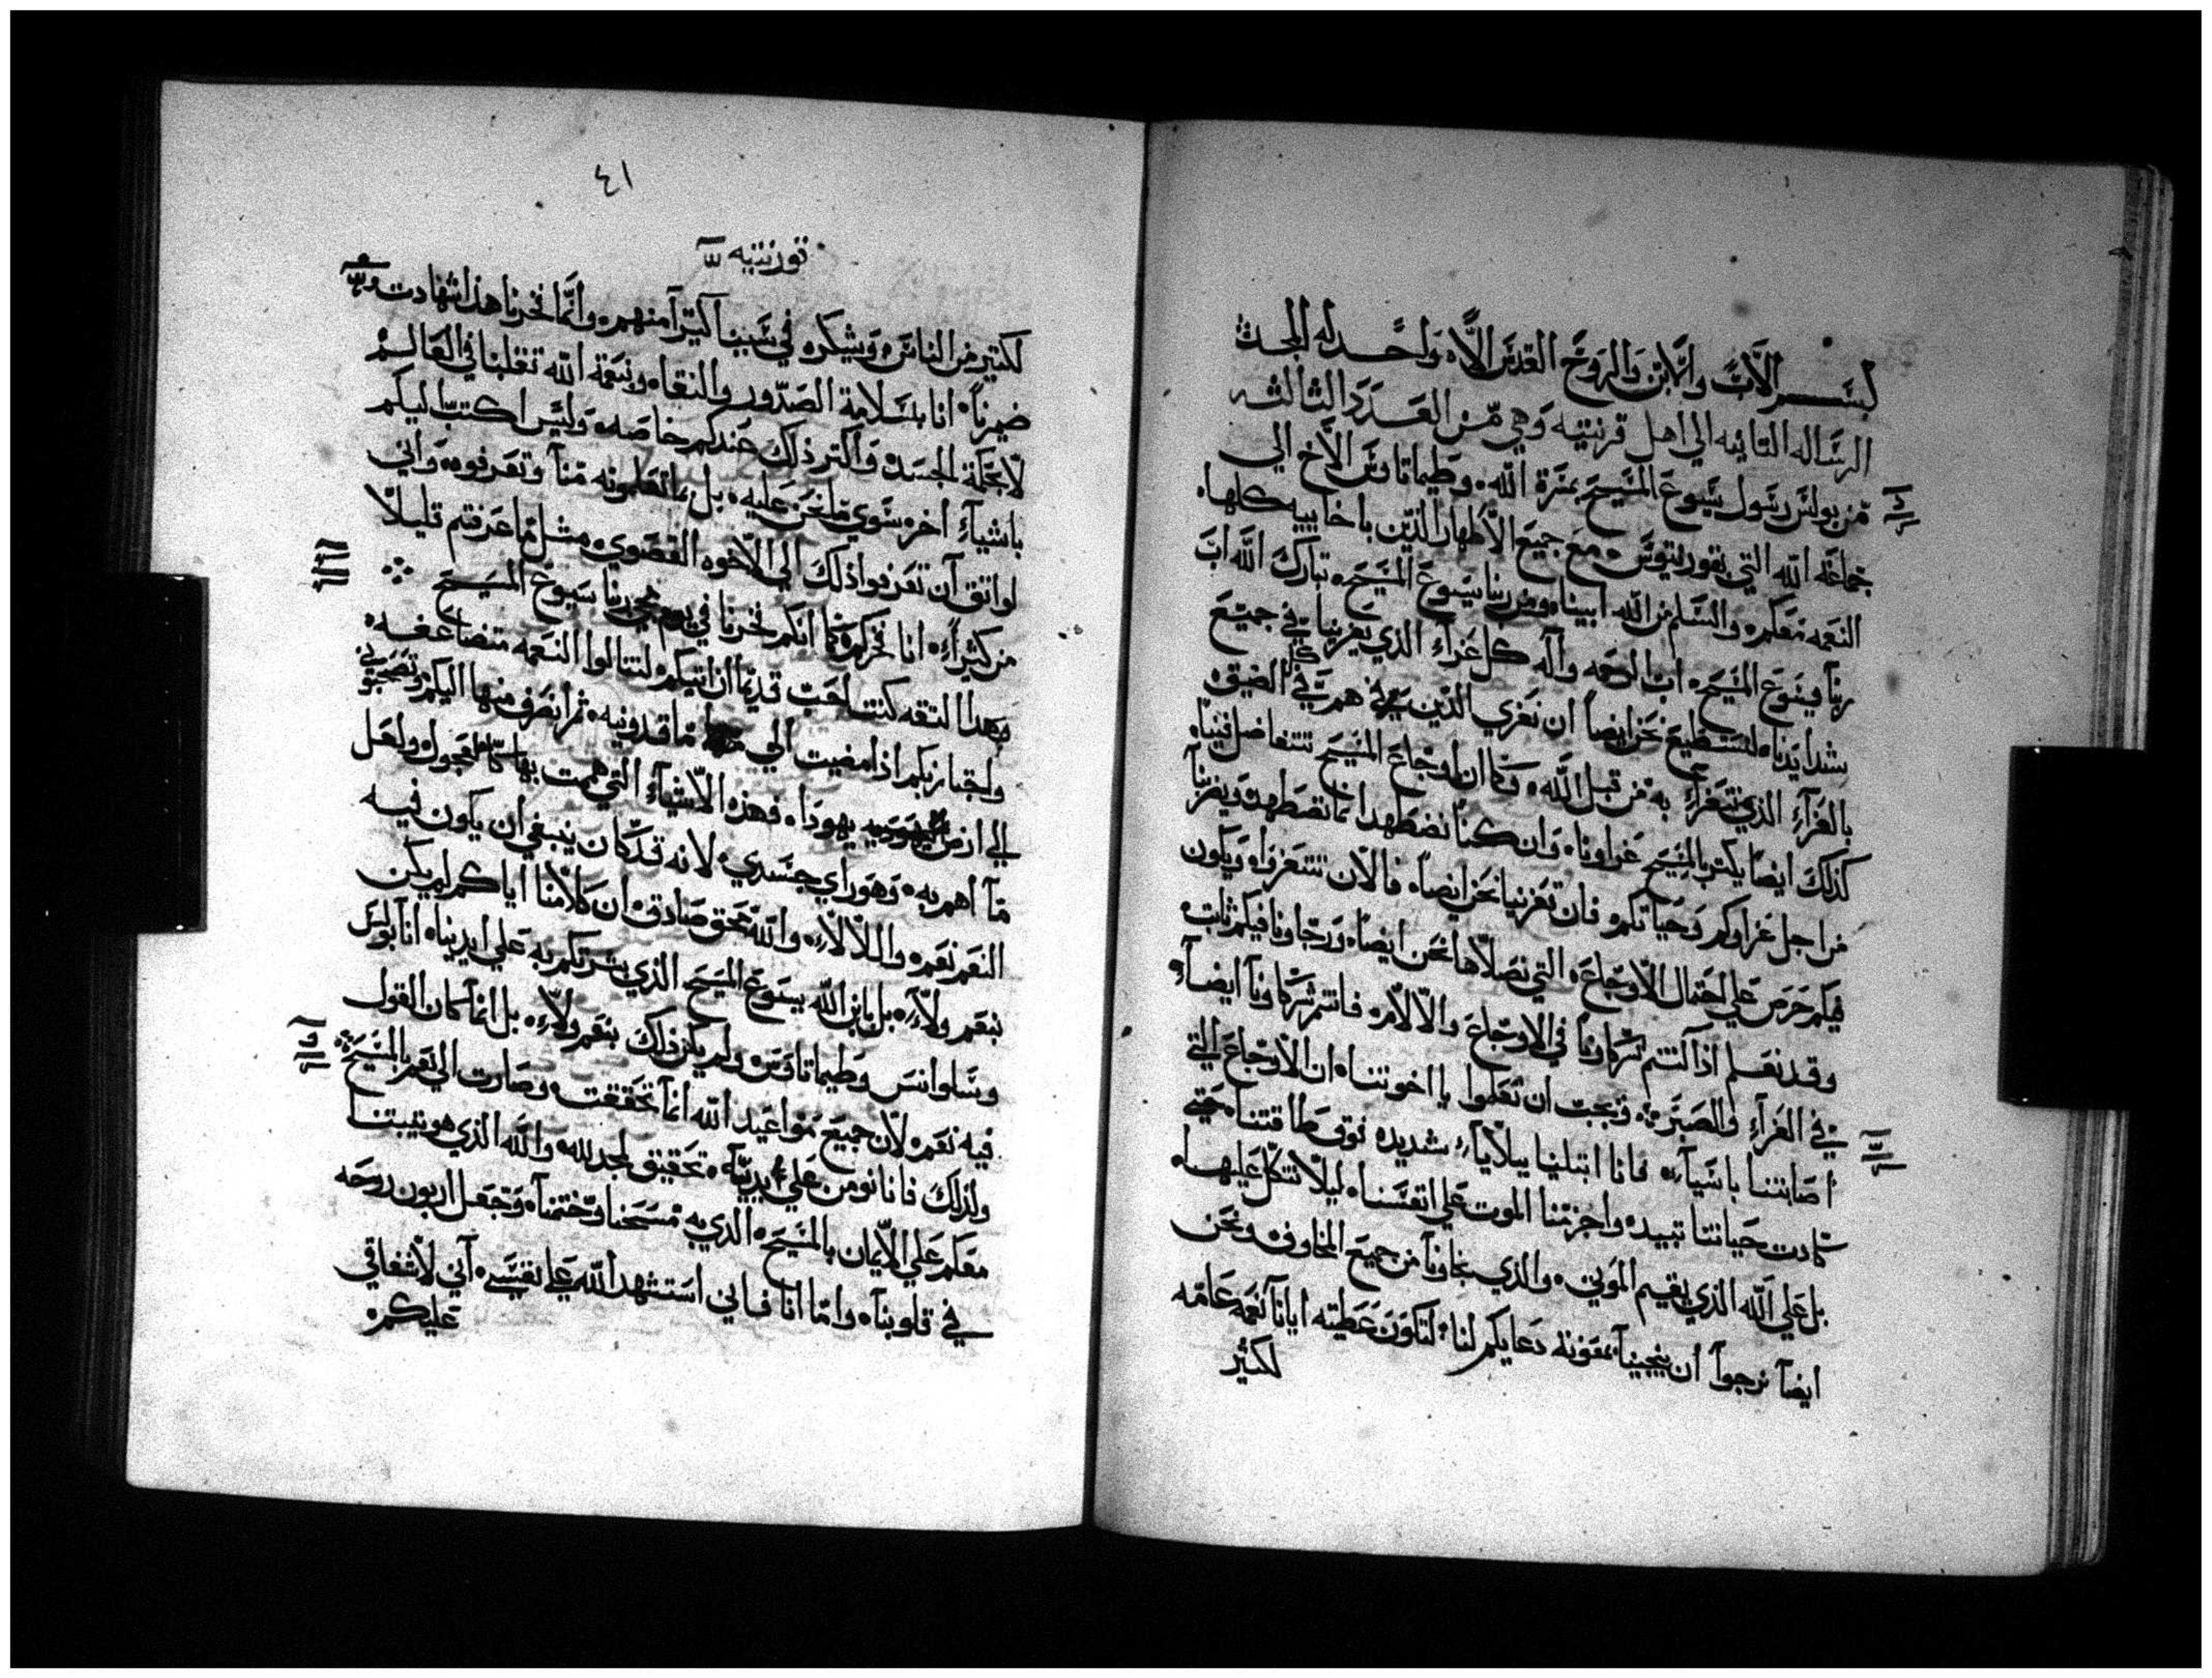 بسم الاب والابن والروح القدس الاله واحد له المجد
الرساله الثانيه الي اهل قرنتيه وهي من العدد الثالثه
من بولس رسول يسوع المسيح بمسرة الله ۰ وطيماتاوس الاخ الي
جماعة الله التي بقورنتيوس ۰ مع جميع الاطهار الذين باخاييه كلها ۰
النعمه معكم ۰ والسلم من الله ابينا ۰ ومن ربنا يسوع المسيح ۰ تبارك الله اب
ربنا يسوع المسيح ۰ اب الرحمه واله كل عزاء الذي يعزينا في جميع
شدايدنا ۰ لنستطيع نحن ايضا ان نعزي الذين هم في كل الضيق ۰
بالعزاء الذي نتعزاء به من قبل الله ۰ وكما ان اوجاع المسيح تتفاضل فينا ۰
كذلك ايضا يكثر بالمسيح عزاونا ۰ وان كنا نضطهد انما نضطهد ويعزينا
من اجل عزاوكم وحياتكم ۰ فان تعزينا نحن ايضا ۰ فالان تتعزوا ۰ ويكون
فيكم حرص علي احتمال الاوجاع ۰ التي نصلاها نحن ايضا ۰ ورجاونا فيكم ثابت ۰
وقد نعلم اذا كنتم شركاونا في الاوجاع والالام ۰ فانتم شركاونا ايضا ۰
في العزاء والصبر ۰ ونحب ان تعلموا يا اخوتنا ۰ ان الاوجاع التي
اصابتنا باسيا ۰ فانا ابتلينا ببلايا شديده فوق طاقتنا ۰ حتي
كادت حياتنا تبيد ۰ واجزمنا الموت علي انفسنا ۰ ليلا نتكل عليها ۰
بل علي الله الذي يقيم الموتي ۰ والذي نجاونا من جميع المخاوف ۰ ونحن
ايضا نرجوا ان ينجينا بمعونة دعايكم لنا ۰ لتكون عطيته ايانا نعمه عامه
لكثير
٤١
قورنتيه
لكثير من الناس ۰ ويشكره في سببنا كثيرا منهم ۰ وانما فخرنا هذا شهادت
ضميرنا ۰ انا بسلامة الصدور والنقاء ۰ ونعمة الله تقلبنا في العالم
لا بحكمة الجسد ۰ واكثر ذلك عندكم خاصه ۰ وليس اكتب اليكم
باشياء اخر ۰ سوي ما نحن عليه ۰ بل ما تعلمونه منا وتعرفوه ۰ واني
لواثق ان تعرفوا ذلك الي الاخره القصوي ۰ مثل ما عرفتم قليلا
من كثيرا ۰ انا فخركم ۰ كما انكم فخرنا في يوم مجي ربنا يسوع المسيح
وبهذا الثقه كنت احب قديما ان اتيكم لتنالوا النعمه متضاعفه ۰
واجتاز بكم اذا مضيت الي ماقدونيه ۰ ثم انصرف منها اليكم وتصحبوني
الي ارض يهودا ۰ فهذه الاشياء التي هممت بها كالعجول ۰ ولعل
ما اهم به ۰ وهو راي جسدي ۰ لانه قد كان ينبغي ان يكون فيه
النعم نعم ۰ واللا لا ۰ والله محق صادق ۰ ان كلامنا اياكم لم يكن
بنعم ولا ۰ بل ابن الله يسوع المسيح الذي بشرتكم به علي ايدينا ۰ انا بولس
وسلوانس وطيماتاوس ۰ ولم يكن ذلك بنعم ولا ۰ بل انما كان القول
فيه نعم ۰ لان جميع مواعيد الله انما تحققت ۰ وصارت الي نعم بالمسيح
ولذلك فانا نومن علي ايدينا ۰ تحقيق لمجد لله ۰ والله الذي هو يثبتنا
معكم علي الايمان بالمسيح ۰ الذي به مسحنا وختمنا ۰ وجعل اربون روحه
في قلوبنا ۰ واما انا فاني استشهد الله علي نفسي ۰ اني لاشفاقي
عليكم ۰